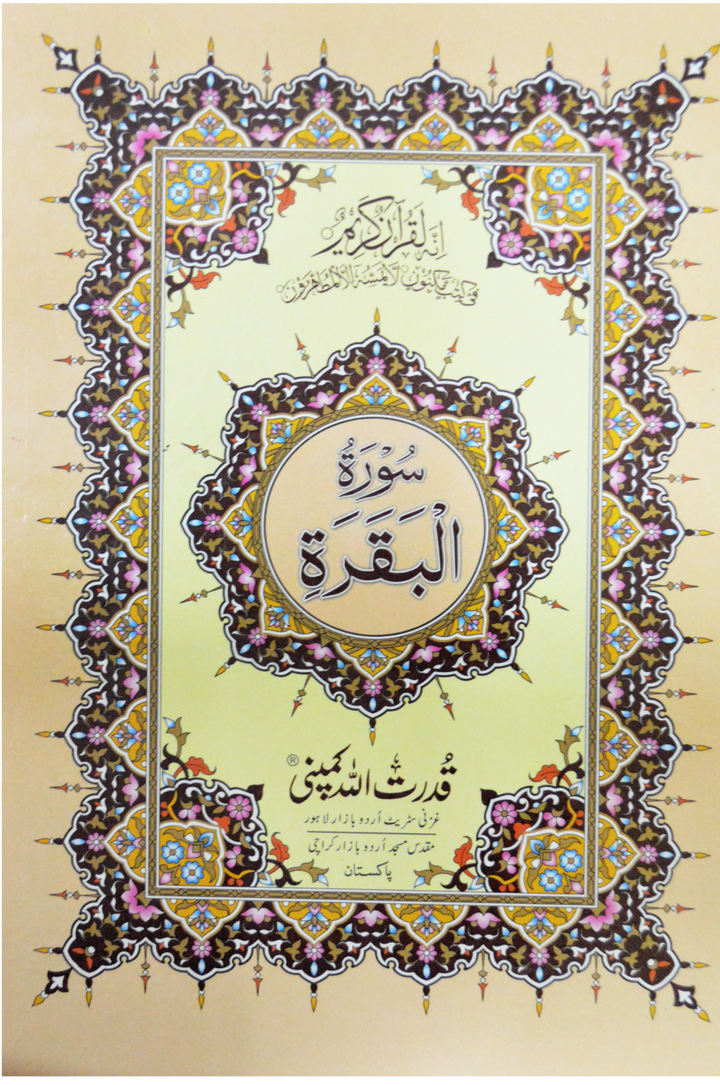 اِنَّهٗ لَقُرْاٰنٌ كَرِیْمٌ
فِیْ كِتٰبٍ مَّكْنُوْنٍ لَّا یَمَسُّهٗۤ اِلَّا الْمُطَهَّرُوْنَ
سُوْرَةُ
الْبَقَرَةِ
قُدرت اللہ کمپنی ®
غزنی سٹریٹ اُردو بازار لاہور
مقدس مسجد اُردو بازار کراچی
پاکستان